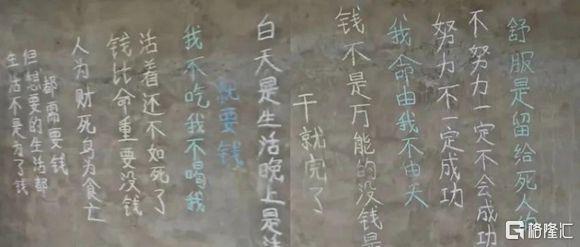 生活不是为了钱
但想要的生活都
都需要钱
人为财死鸟为食亡
钱比命重要没钱
活着还不如死了
我不吃我不喝我
就要钱
白天是生活晚上是
干就完了
钱不是万能的没钱是
我命由我不由天
努力不一定成功
不努力一定不会成功
舒服是留给死人的
格隆汇